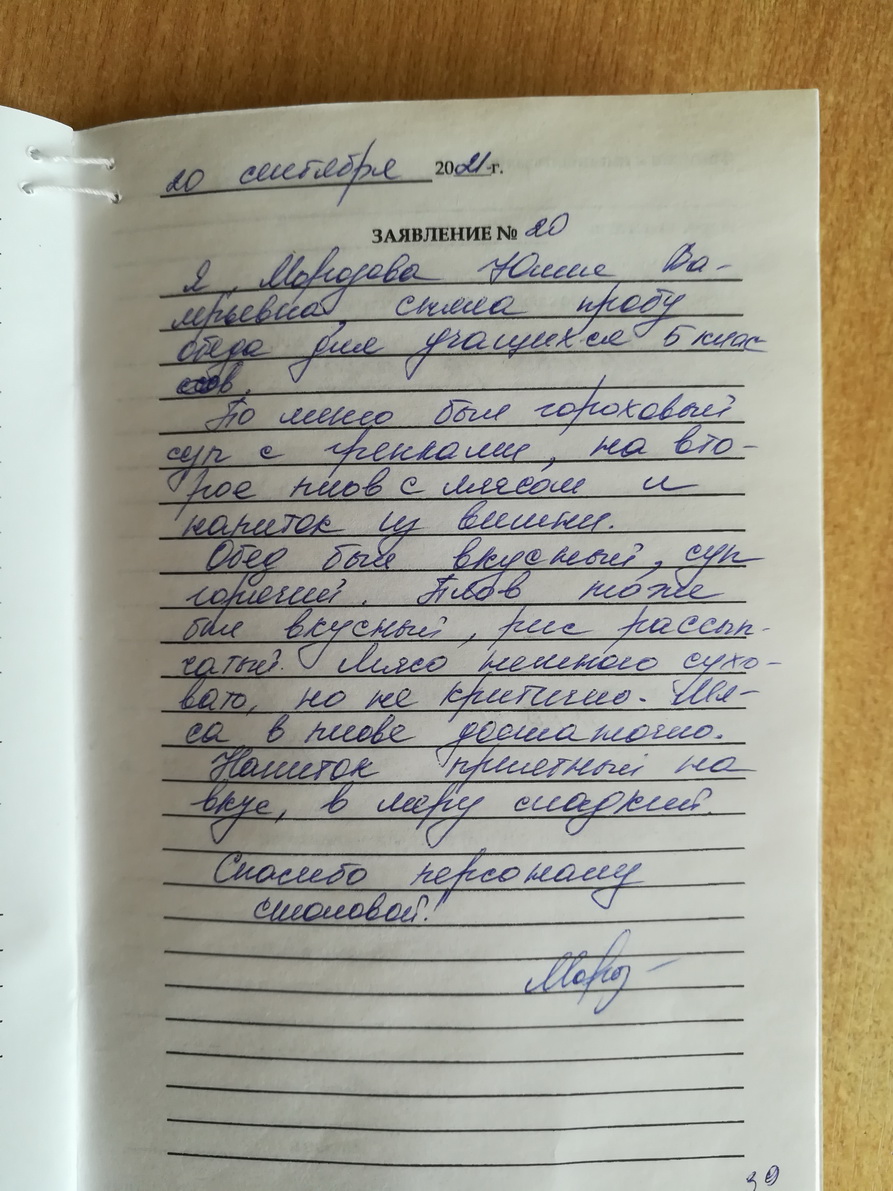 20 сентября 2021 г.
ЗАЯВЛЕНИЕ № 20
Я, Морозова Юлия Ва-
лерьевна, сняла пробу
обеда для учащихся 5 клас
сов.
По меню был гороховый
суп с гренками, на вто-
рое плов с мясом и
напиток из вишни.
Обед был вкусный, суп
горячий. Плов тоже
был вкусный, рис рассып-
чатый. Мясо немного сухо-
вато, но не критично. Мя-
са в плове достаточно.
Напиток приятный на
вкус, в меру сладкий.
Спасибо персоналу
столовой!
Мороз
39